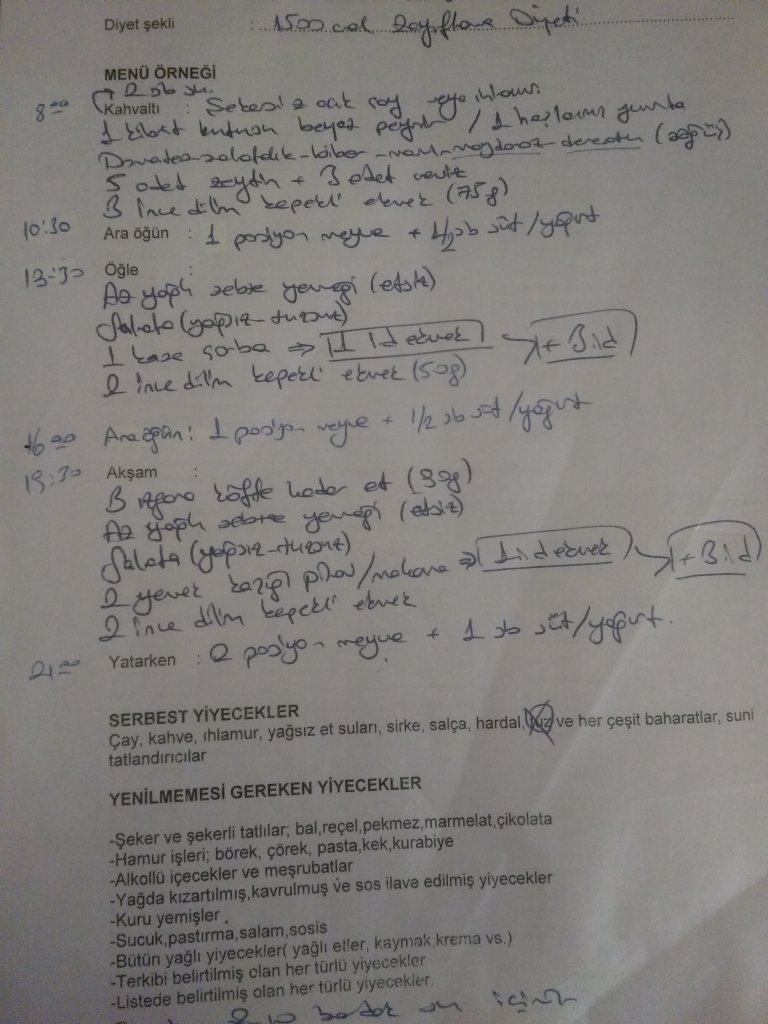 Diyet şekli : 1500 cal Zayıflama Diyeti
MENÜ ÖRNEĞİ
→ 2 sb su.
8:00 Kahvaltı : Şekersiz açık çay veya ıhlamur
1 kibrit kutusu beyaz peynir / 1 haşlanmış yumurta
Domates-salatalık-biber-marul-maydanoz-dereotu (söğüş)
5 adet zeytin + 3 adet ceviz
3 ince dilim kepekli ekmek (75g)
10:30 Ara öğün : 1 porsiyon meyve + 1/2 sb süt/yoğurt
13:30 Öğle :
Az yağlı sebze yemeği (etsiz)
Salata (yağsız-tuzsuz)
1 kase çorba ⇒ 1 id ekmek → + 3 id
2 ince dilim kepekli ekmek (50g)
16:00 Ara öğün : 1 porsiyon meyve + 1/2 sb süt/yoğurt
19:30 Akşam :
3 ızgara köfte kadar et (99g)
Az yağlı sebze yemeği (etsiz)
Salata (yağsız-tuzsuz)
2 yemek kaşığı pilav/makarna ⇒ 1 id ekmek → + 3 id
2 ince dilim kepekli ekmek
21:00 Yatarken : 2 porsiyon meyve + 1 sb süt/yoğurt.
SERBEST YİYECEKLER
Çay, kahve, ıhlamur, yağsız et suları, sirke, salça, hardal, tuz ve her çeşit baharatlar, suni
tatlandırıcılar
YENİLMEMESİ GEREKEN YİYECEKLER
-Şeker ve şekerli tatlılar; bal,reçel,pekmez,marmelat,çikolata
-Hamur işleri; börek, çörek, pasta,kek,kurabiye
-Alkollü içecekler ve meşrubatlar
-Yağda kızartılmış,kavrulmuş ve sos ilave edilmiş yiyecekler
-Kuru yemişler
-Sucuk,pastırma,salam,sosis
-Bütün yağlı yiyecekler( yağlı etler, kaymak,krema vs.)
-Terkibi belirtilmiş olan her türlü yiyecekler
-Listede belirtilmiş olan her türlü yiyecekler.
8-10 bardak su içiniz